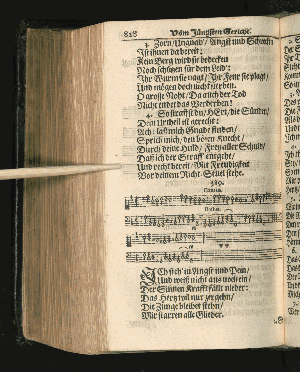 818 Vom Jüngsten Gericht.
3. Zorn/ Ungnad/ Angst und Schrecken
Ist ihnen da bereit:
Kein Berg wird sie bedecken
Noch schützen für dem Leid:
Ihr Wurm sie nagt/ Ihr Feur sie plagt/
Und mögen doch nicht sterben.
O grosse Noht/ Da auch der Tod
Nicht endet das Verderben!
4. So straffst du/ HErr/ die Sünden/
Dein Urtheil ist gerecht:
Ach! laß mich Gnade finden/
Sprich mich, den bösen Knecht/
Durch deine Huld/ Frey aller Schuld/
Daß ich der Straff entgehe/
Und recht bereit/ Mit Freudigkeit
Vor deinem Richt-Stuel stehe.
389.
Cantus.
Bassus.
ICh steh in Angst und Pein/
Und weiß nicht aus noch ein/
Der Sinnen Krafft fällt nieder:
Das Hertz will mir zergehn/
Die Zunge bleibet stehn/
Mir starren alle Glieder.